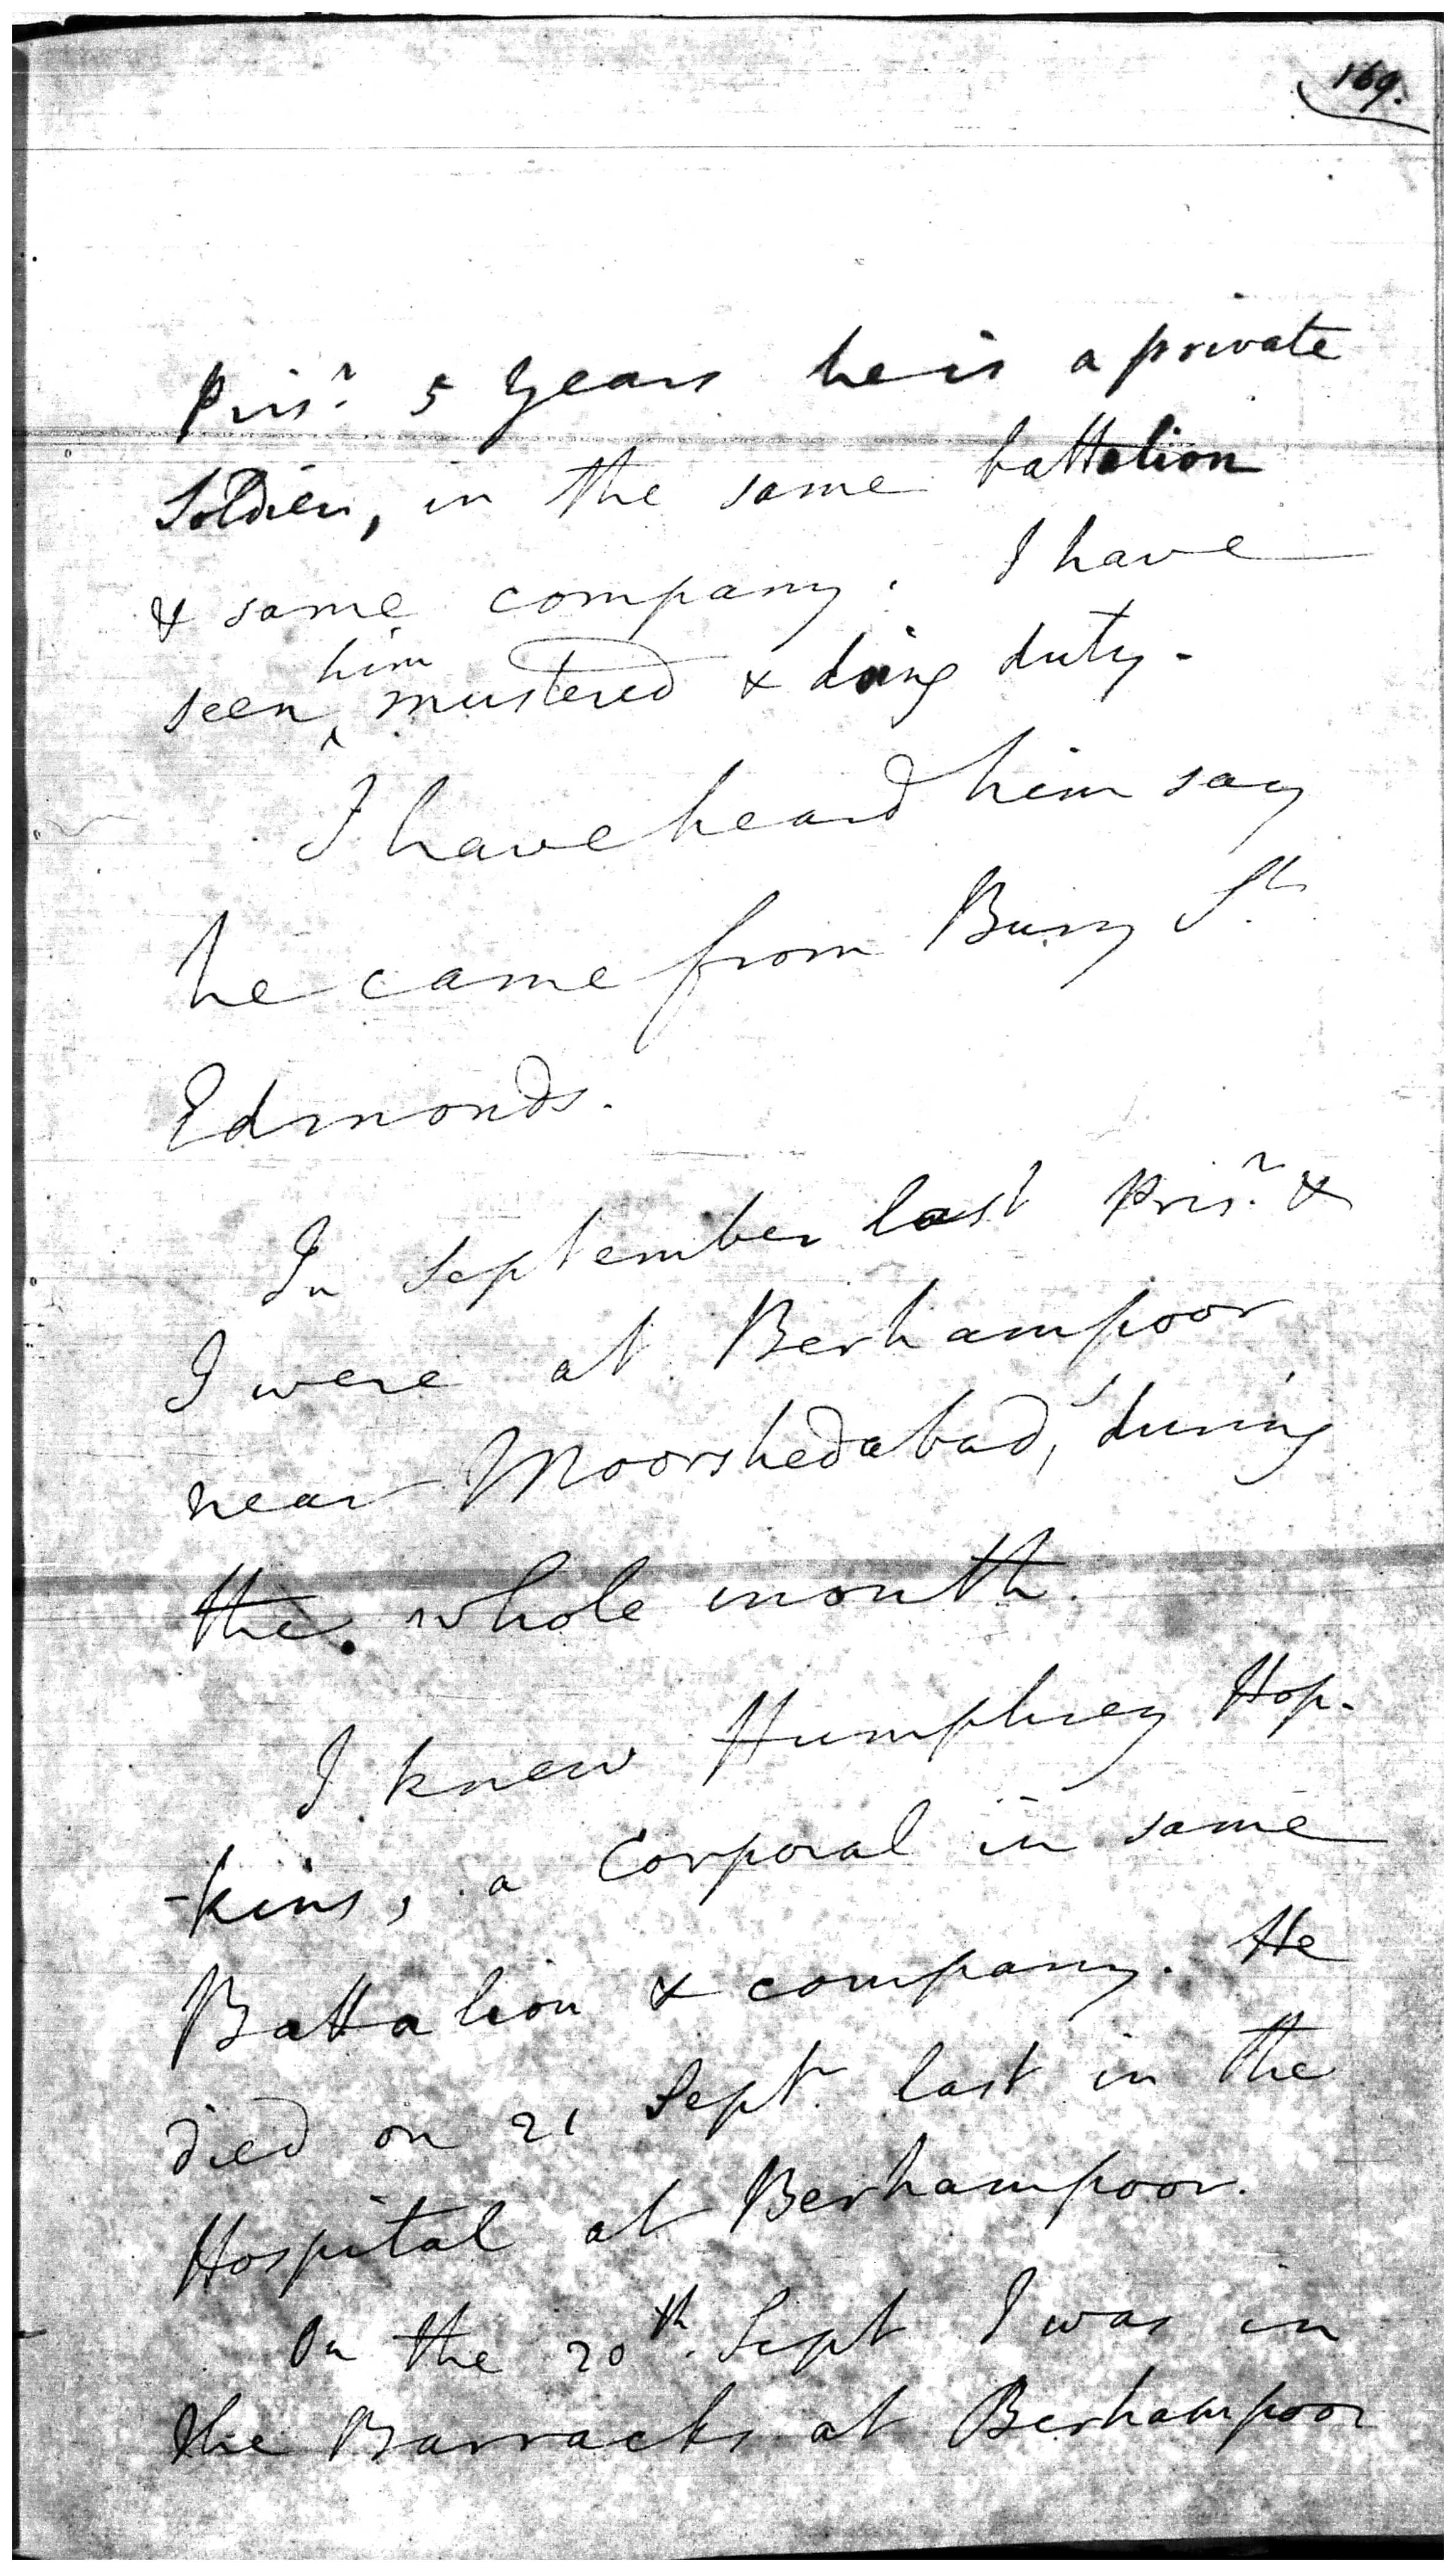 169.
Pris.r 5 Years he is a private
Soldier, in the same battalion
& same company. I have
seen him mustered & doing duty.
I have heard him say
he came from Bury St.
Edmonds.
In September last Pris.r &
I were at Berhampoor,
near Moorshedabad, during
the whole month.
I knew Humphrey Hop-
-kins, a Corporal in same
Battalion & company. He
died on 21 Sept. last in the
Hospital at Berhampoor.
On the 20th. Sept I was in
the Barracks at Berhampoor